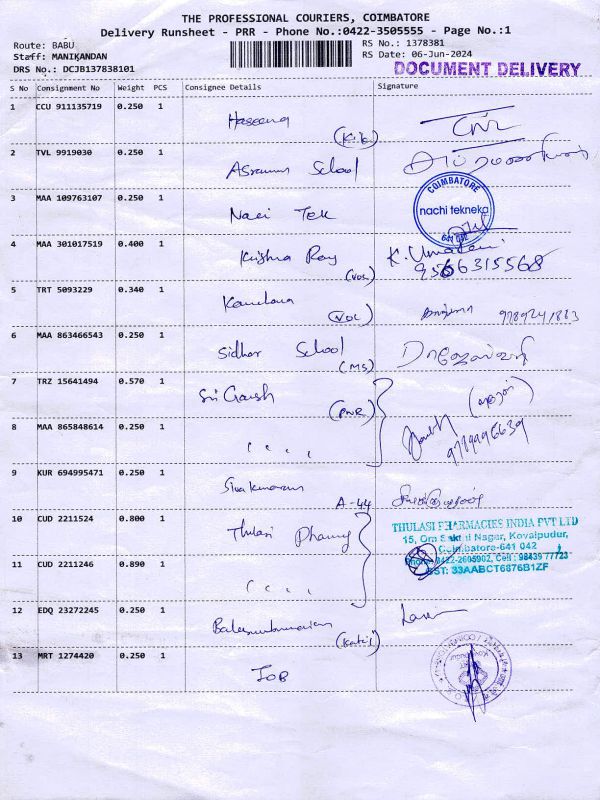 THE PROFESSIONAL COURIERS, COIMBATORE
Delivery Runsheet - PRR - Phone No.:0422-3505555 - Page No.:1
Route: BABU
Staff: MANIKANDAN
DRS No.: DCJB137838101
RS No.: 1378381
RS Date: 06-Jun-2024
DOCUMENT DELIVERY
S No Consignment No Weight PCS Consignee Details Signature
1 CCU 911135719 0.250 1 Haseena
2 TVL 9919030 0.250 1 School
3 MAA 109763107 0.250 1 Naci Tek
COIMBATORE
nachi tekneka
641 032
4 MAA 301017519 0.400 1 Krishna Ray (VOL) K. Umarani
9566315568
5 TRT 5093229 0.340 1 (VOL)
6 MAA 863466543 0.250 1 Sidhar School (MS)
7 TRZ 15641494 0.570 1 Sri Ganesh (PNR)
9789996639
8 MAA 865848614 0.250 1 " "
9 KUR 694995471 0.250 1 Sivakumaran A-44
10 CUD 2211524 0.800 1 Thulasi Pharmy
THULASI PHARMACIES INDIA PVT LTD
15, Om Sakthi Nagar, Kovaipudur,
Coimbatore-641 042
Phone: 0422-2605902, Cell: 98439 77723
GST: 33AABCT6876B1ZF
11 CUD 2211246 0.890 1 " "
12 EDQ 23272245 0.250 1 Balasubramaniam
13 MRT 1274420 0.250 1 IOB